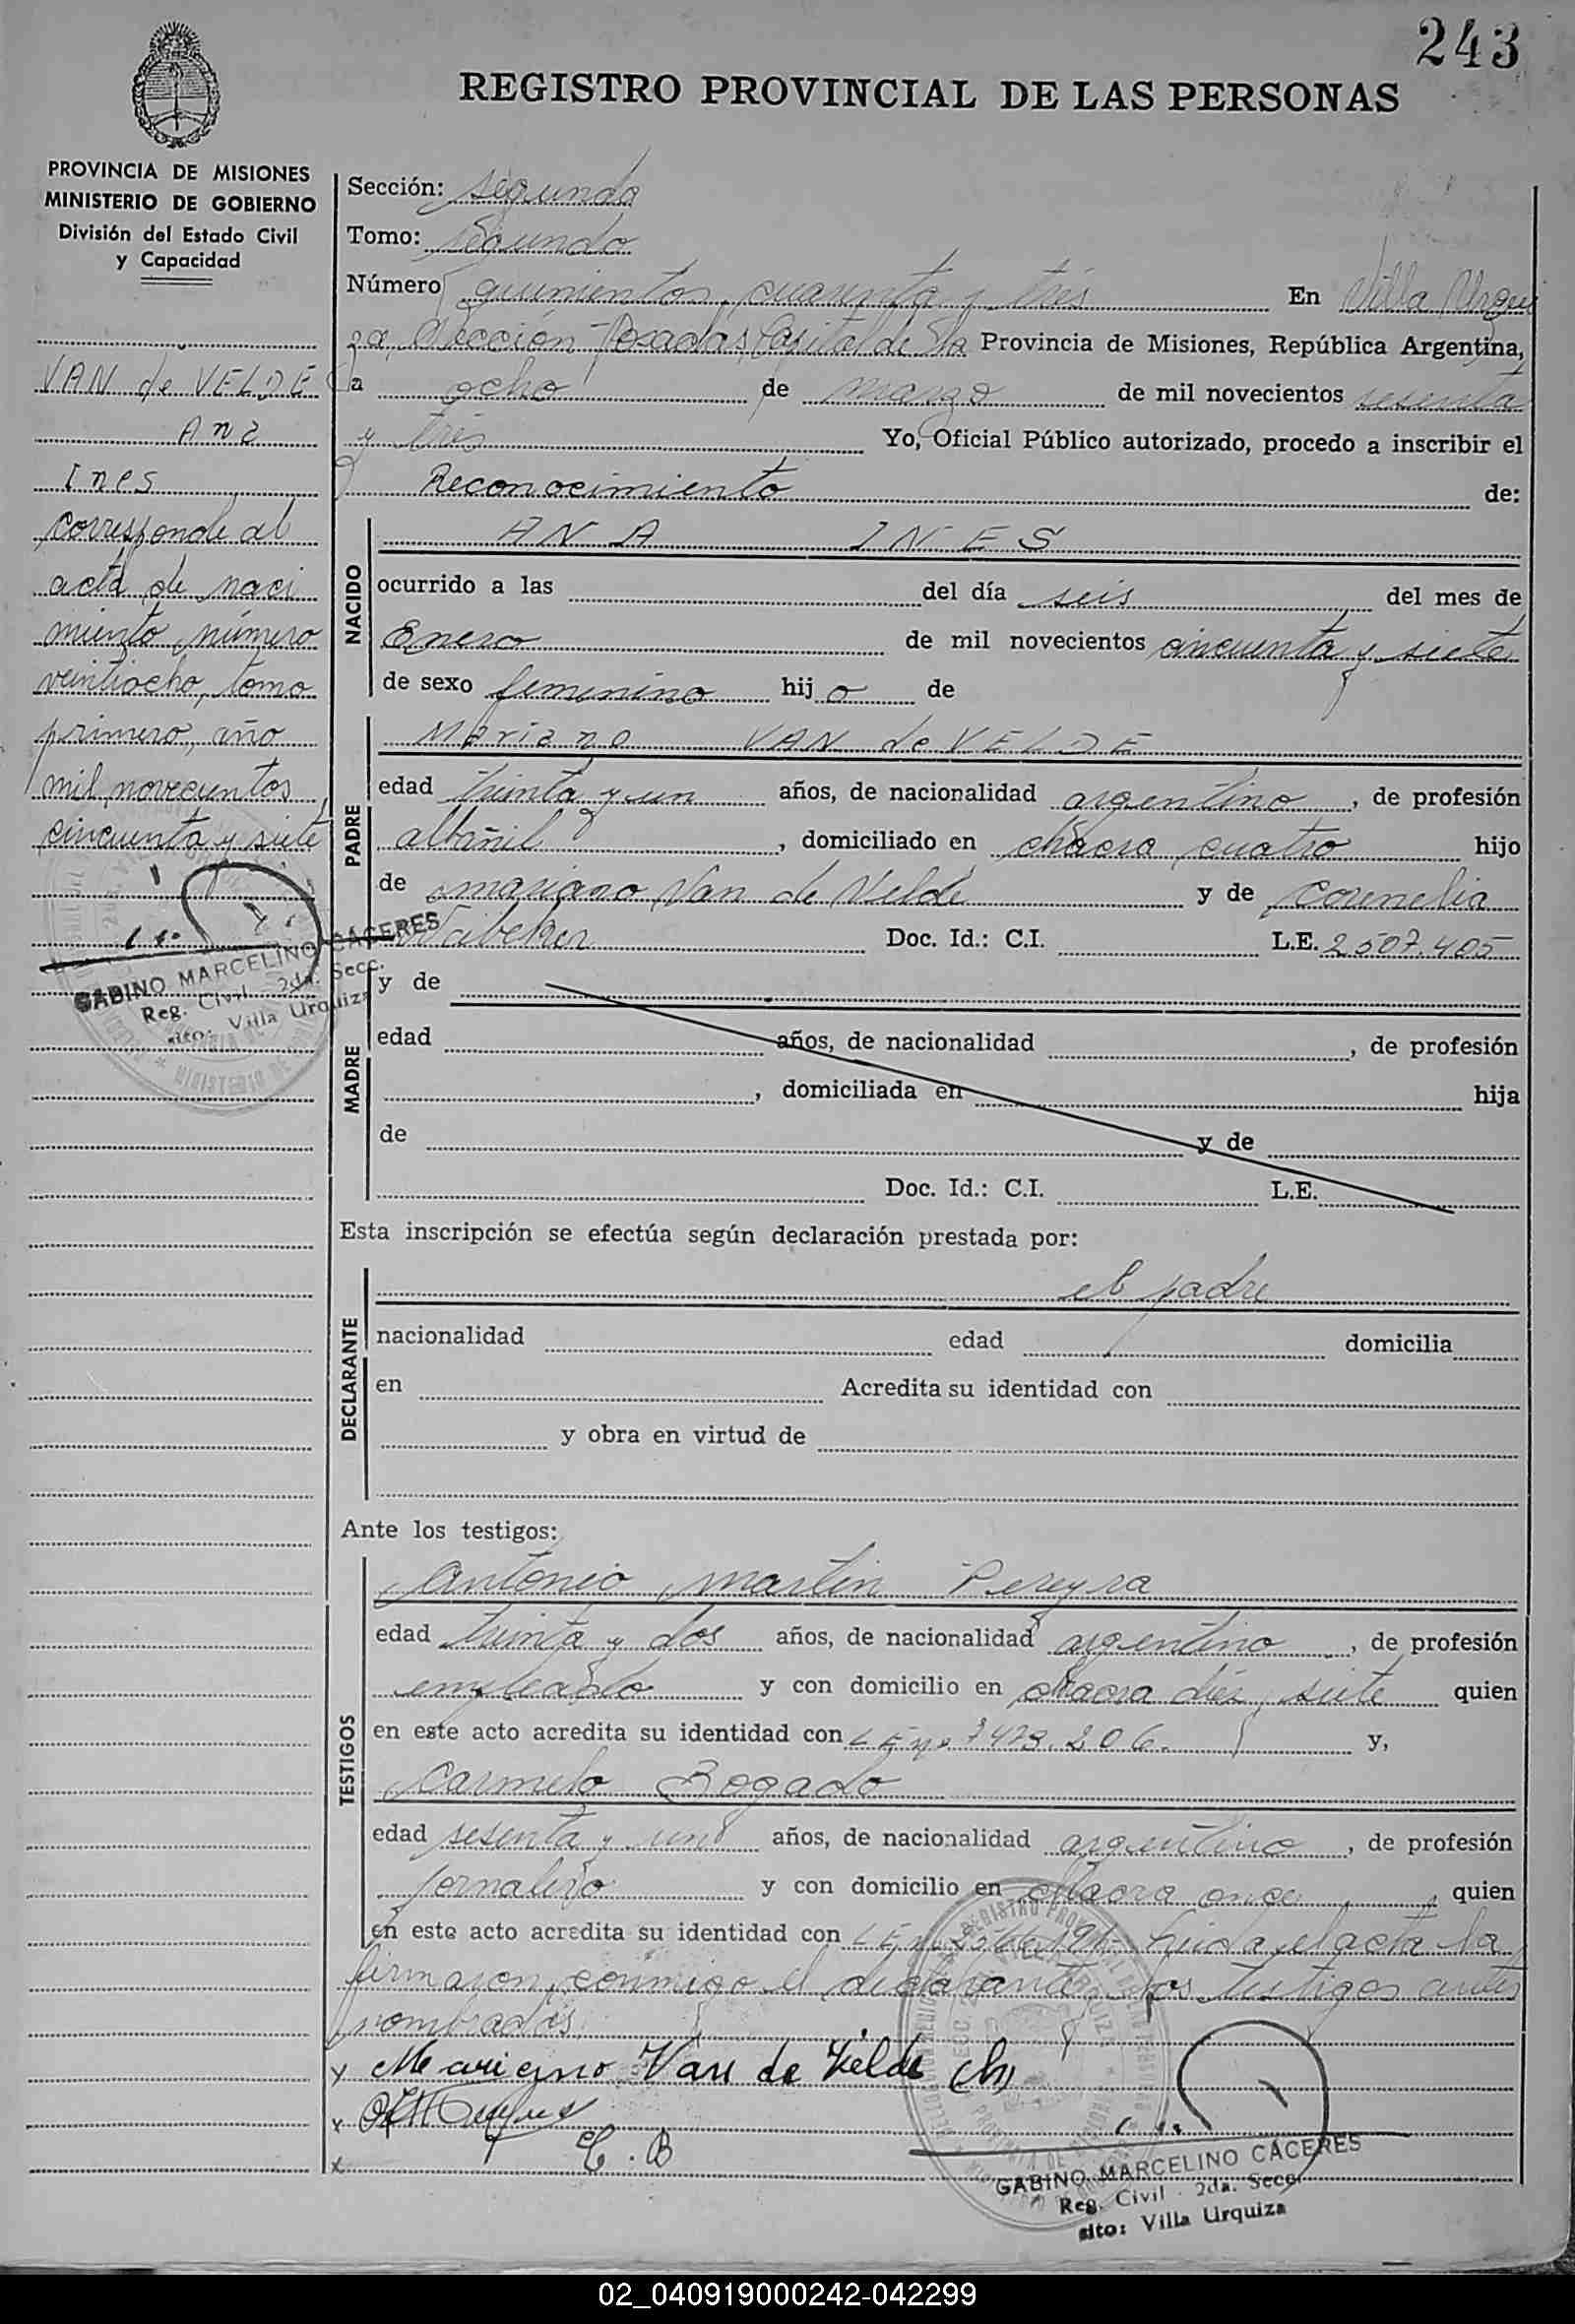 243
REGISTRO PROVINCIAL DE LAS PERSONAS
PROVINCIA DE MISIONES
MINISTERIO DE GOBIERNO
División del Estado Civil
y Capacidad
VAN de VELDE
Ana
Ines
corresponde al
acta de naci
miento, número
veintiocho, tomo
primero, año
mil novecientos
cincuenta y siete
GABINO MARCELINO CÁCERES
Reg. Civil - 2da. Secc.
sito: Villa Urquiza
Sección: segunda
Tomo: segundo
Número quinientos cuarenta y tres En Villa Urqui
za, Sección Posadas Capital de la Provincia de Misiones, República Argentina,
a ocho de marzo de mil novecientos sesenta
y tres Yo, Oficial Público autorizado, procedo a inscribir el
Reconocimiento de:
NACIDO
ANA INES
ocurrido a las del día seis del mes de
Enero de mil novecientos cincuenta y siete
de sexo femenino hijo de
PADRE
Mariano VAN de VELDE
edad treinta y un años, de nacionalidad argentino, de profesión
albañil, domiciliado en chacra cuatro hijo
de mariano Van de Velde y de
Doc. Id.: C.I. L.E. 2507.405
MADRE
y de
edad años, de nacionalidad , de profesión
, domiciliada en hija
de y de
Doc. Id.: C.I. L.E.
Esta inscripción se efectúa según declaración prestada por:
DECLARANTE
el padre
nacionalidad edad domicilia
en Acredita su identidad con
y obra en virtud de
Ante los testigos:
TESTIGOS
Antonio Martin Pereyra
edad treinta y dos años, de nacionalidad argentino, de profesión
empleado y con domicilio en chacra diez y siete quien
en este acto acredita su identidad con L E nº 7473.206. y,
Carmelo Bogado
edad sesenta y un años, de nacionalidad argentino, de profesión
jornalero y con domicilio en chacra once, quien
en este acto acredita su identidad con L E nº Leida el acta la
firmaron conmigo el declarante y los testigos antes
nombrados.
x Mariano Van de Velde (h)
x
x C. B
GABINO MARCELINO CÁCERES
Reg. Civil - 2da. Secc.
sito: Villa Urquiza
02_040919000242-042299